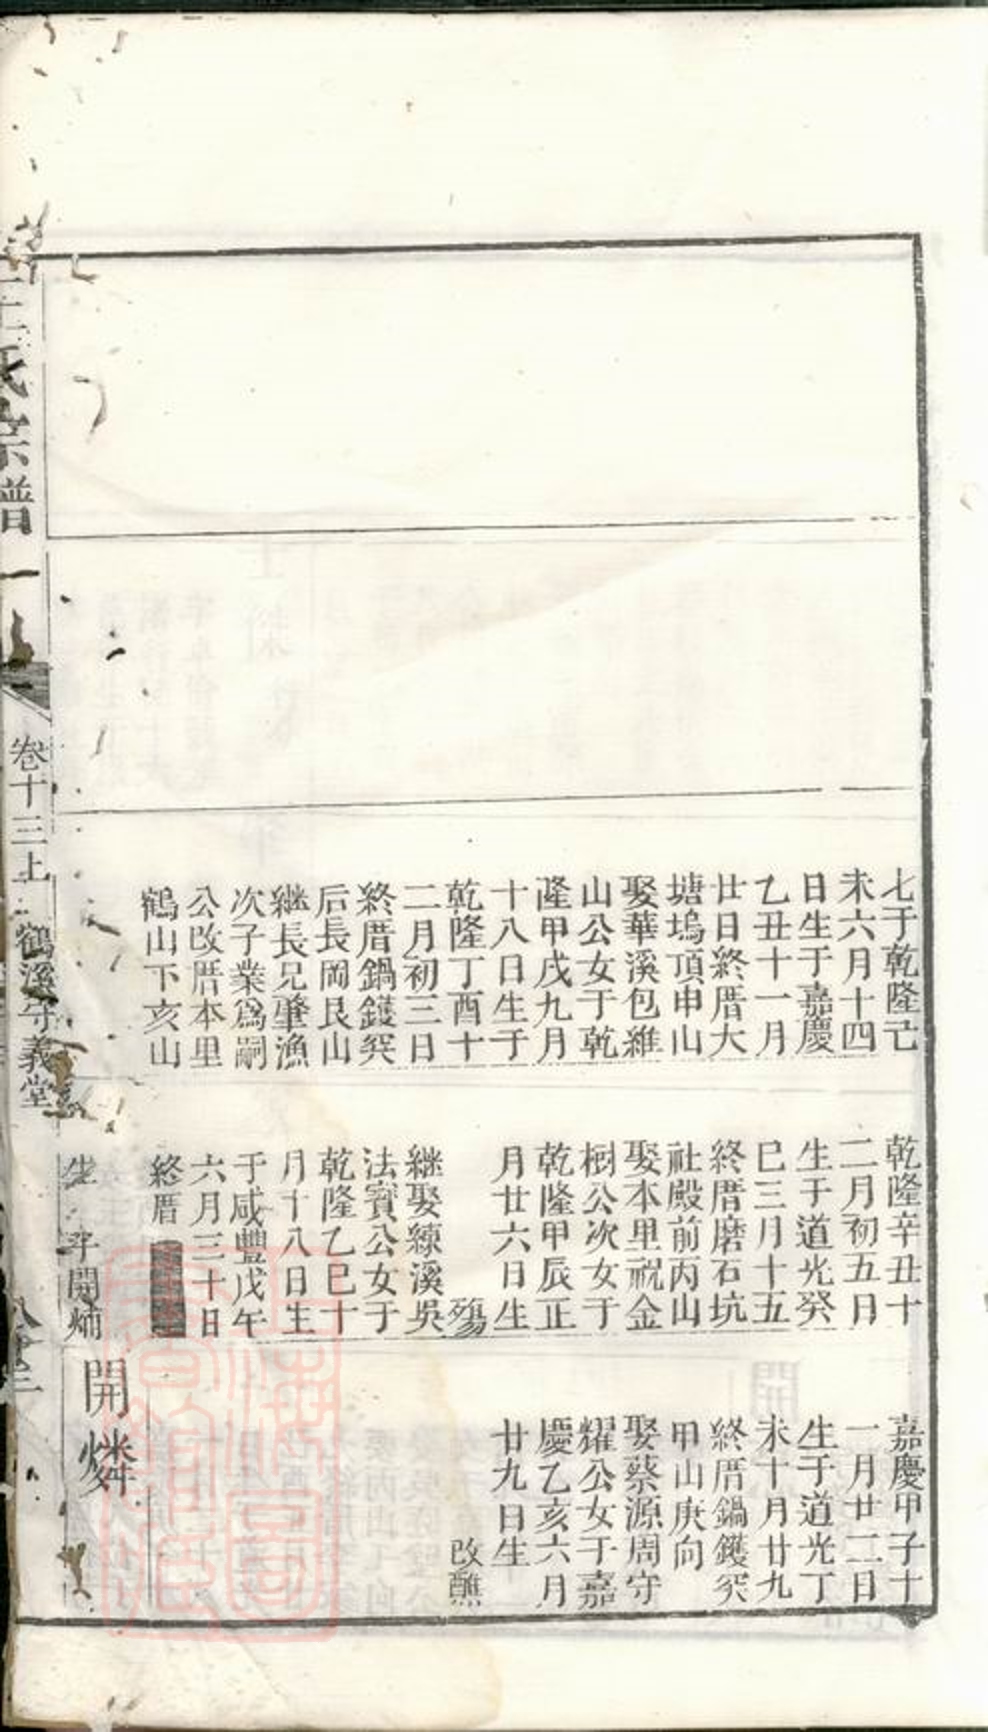 七于乾隆己
未六月十四
日生于嘉慶
乙丑十一月
廿日終厝大
塘塢頂申山
娶華溪包維
山公女于乾
隆甲戌九月
十八日生于
乾隆丁酉十
二月初三日
終厝鍋鑊穾
后長岡艮山
繼長兄肇漁
次子業為嗣
公改厝本里
鶴山下亥山
乾隆辛丑十
二月初五日
生于道光癸
巳三月十五
終厝磨石坑
社殿前丙山
娶本里祝金
樹公次女于
乾隆甲辰正
月廿六日生
殤
繼娶練溪吳
法寶公女于
乾隆乙巳十
月十八日生
于咸豐戊午
六月三十日
終厝
生 子開炳
嘉慶甲子十
一月廿二日
生于道光丁
未十月廿九
終厝鍋鑊穾
甲山庚向
娶蔡源周守
耀公女于嘉
慶乙亥六月
廿九日生
改醮
開燐
王氏宗譜
卷十三上
鶴溪守義堂